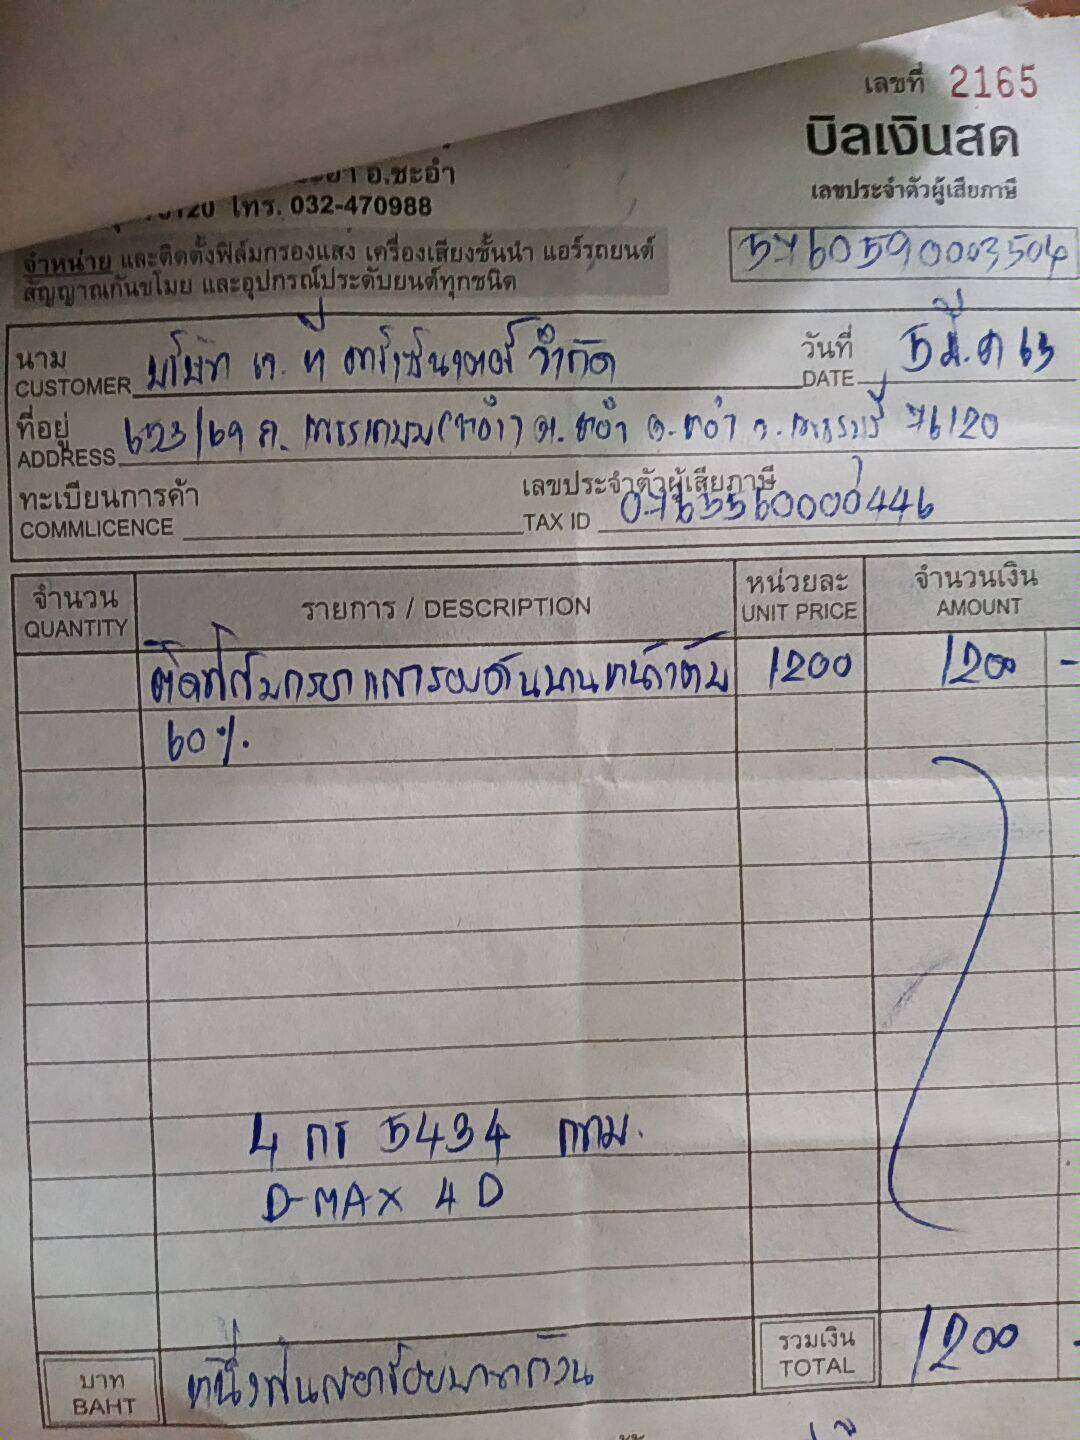 เลขที่ 2165
บิลเงินสด
เลขประจำตัวผู้เสียภาษี
5760590003504
อ.ชะอำ
โทร. 032-470988
จำหน่าย และติดตั้งฟิล์มกรองแสง เครื่องเสียงชั้นนำ แอร์รถยนต์
สัญญาณกันขโมย และอุปกรณ์ประดับยนต์ทุกชนิด
นาม บริษัท เจ. ที จำกัด
CUSTOMER
วันที่ 5 มี.ค 63
DATE
ที่อยู่ 623/69 ถ. เพชรเกษม (ชะอำ) ต. ชะอำ อ. ชะอำ จ. เพชรบุรี 76120
ADDRESS
ทะเบียนการค้า
COMMLICENCE
เลขประจำตัวผู้เสียภาษี
TAX ID 0765560000446
จำนวน รายการ / DESCRIPTION หน่วยละ จำนวนเงิน
QUANTITY UNIT PRICE AMOUNT
ติดฟิล์มกรองแสงรอบคันบานหน้าเต็ม 1200 1200 -
60%.
4 กร 5434 กทม.
D-MAX 4D
บาท หนึ่งพันสองร้อยบาทถ้วน รวมเงิน 1200 -
BAHT TOTAL